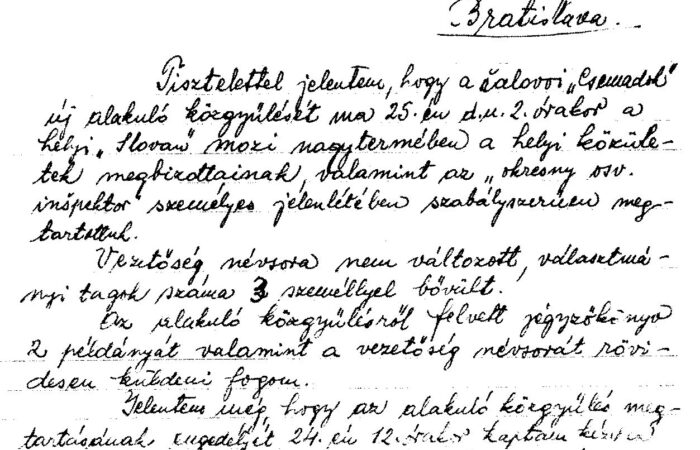 Bratislava.
Tisztelettel jelentem, hogy a šalovoi „Csemadok"
új alakuló közgyülését ma 25.-én d.u. 2. órakor a
helyi „Slovan" mozi nagytermében a helyi közüle-
tek megbizottainak, valamint az „okresny osv.
inšpektor" személyes jelenlétében szabályszerüen meg-
tartottuk.
Vezetőség névsora nem változott, választmá-
nyi tagok száma 3 személlyel bővült.
Az alakuló közgyülésről felvett jegyzőkönyv
2 példányát valamint a vezetőség névsorát rövi-
desen küldeni fogom.
Jelentem még, hogy az alakuló közgyülés meg-
tartásának engedéljét 24.-én 12. órakor kaptam